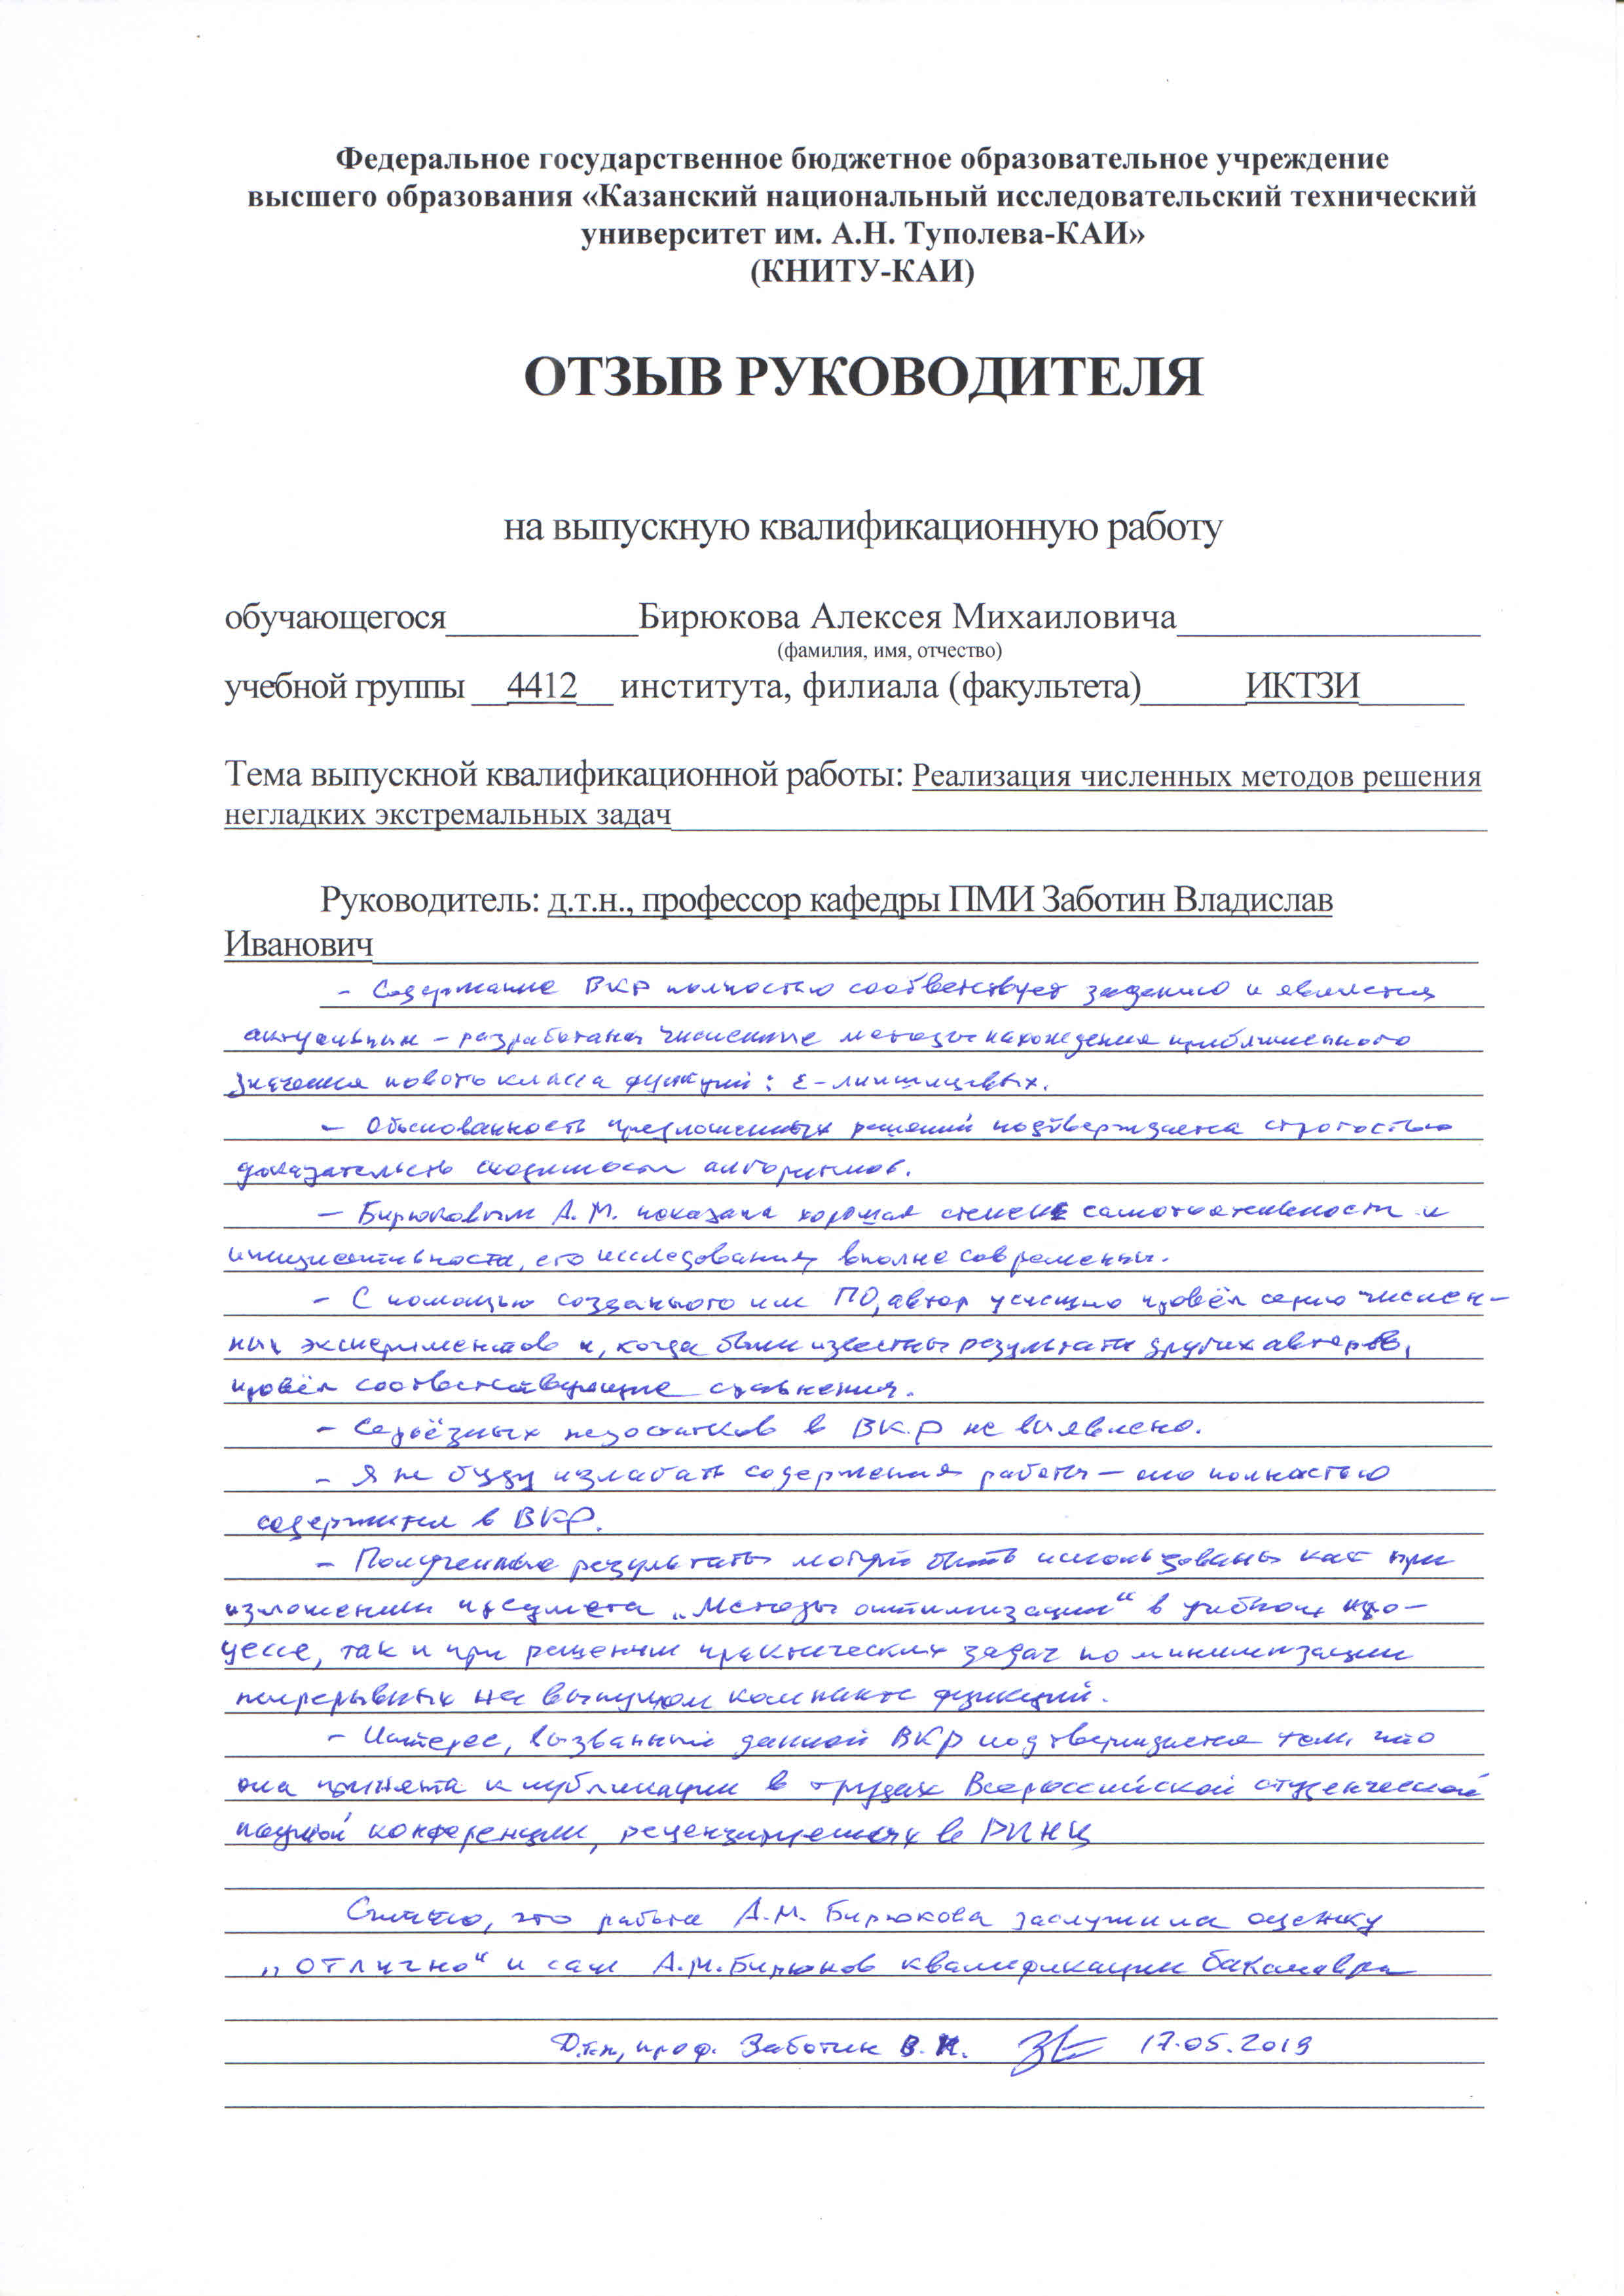 Федеральное государственное бюджетное образовательное учреждение
высшего образования «Казанский национальный исследовательский технический
университет им. А.Н. Туполева-КАИ»
(КНИТУ-КАИ)
ОТЗЫВ РУКОВОДИТЕЛЯ
на выпускную квалификационную работу
обучающегося Бирюкова Алексея Михаиловича
(фамилия, имя, отчество)
учебной группы 4412 института, филиала (факультета) ИКТЗИ
Тема выпускной квалификационной работы: Реализация численных методов решения
негладких экстремальных задач
Руководитель: д.т.н., профессор кафедры ПМИ Заботин Владислав
Иванович
- Содержание ВКР полностью соответствует заданию и является
актуальным - разработаны численные методы нахождения приближенного
значения нового класса функций: ε-липшицевых.
- Обоснованность предложенных решений подтверждается строгостью
доказательств сходимости алгоритмов.
- Бирюковым А.М. показана хорошая степень самостоятельности и
инициативности, его исследования вполне современны.
- С помощью созданного им ПО, автор успешно провёл серию числен-
ных экспериментов и, когда были известны результаты других авторов,
провёл соответствующие сравнения.
- Серьёзных недостатков в ВКР не выявлено.
- Я не буду излагать содержания работы - оно полностью
содержится в ВКР.
- Полученные результаты могут быть использованы как при
изложении предмета „Методы оптимизации“ в учебном про-
цессе, так и при решении практических задач по минимизации
непрерывных на выпуклом компакте функций.
- Интерес, вызванный данной ВКР подтверждается тем, что
она принята к публикации в трудах Всероссийской студенческой
научной конференции, рецензируемых в РИНЦ
Считаю, что работа А.М. Бирюкова заслужила оценку
„отлично“ и сам А.М. Бирюков квалификации бакалавра
Д.т.н, проф. Заботин В.И. 17.05.2019